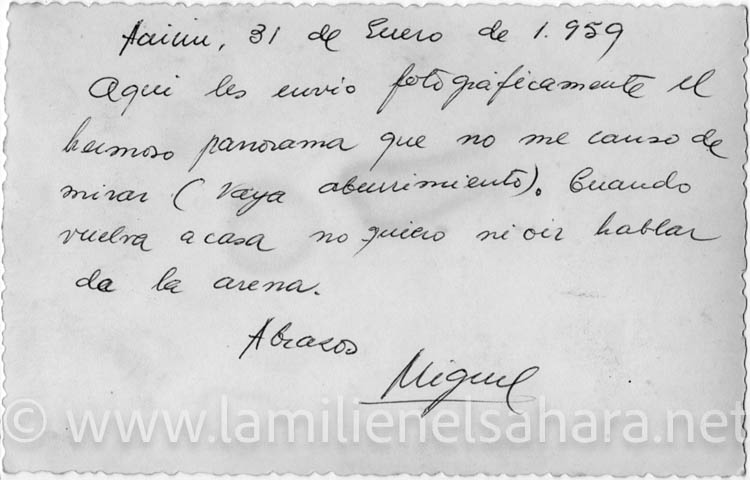 Aaiun, 31 de Enero de 1.959
Aqui les envio fotográficamente el
hermoso panorama que no me canso de
mirar (vaya aburrimiento). Cuando
vuelva a casa no quiero ni oir hablar
de la arena.
Abrazos
Miguel
© www.lamilienelsahara.net